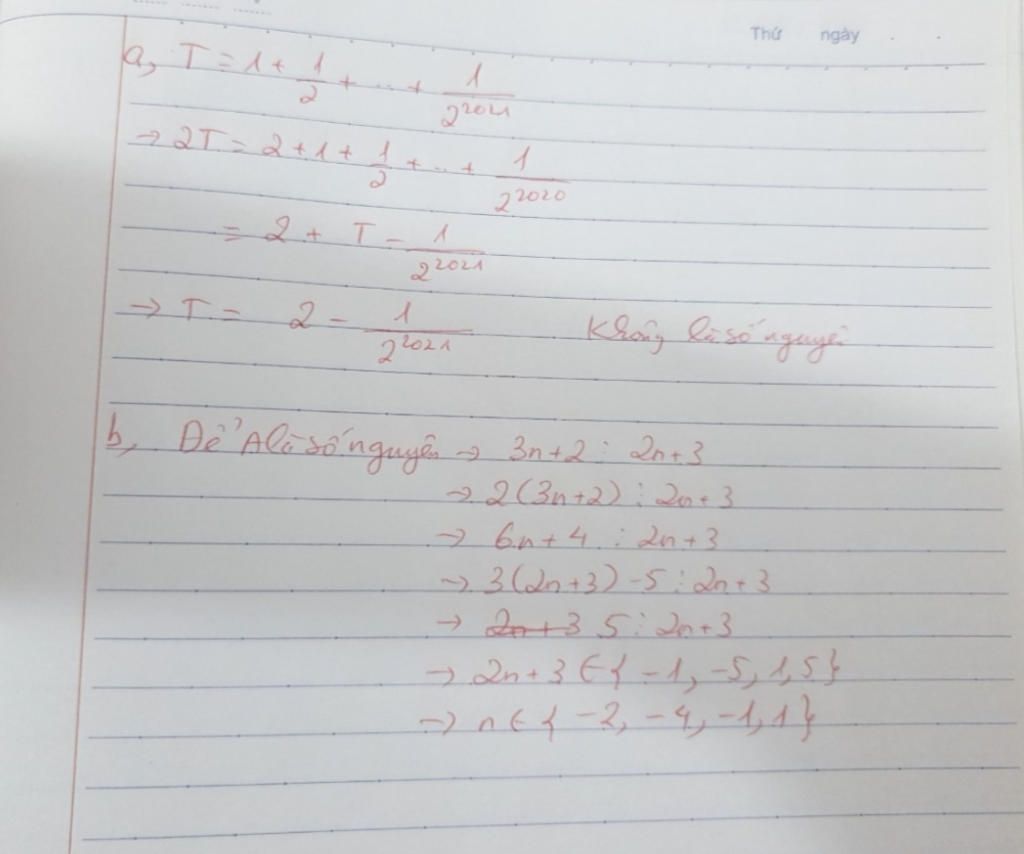 Thứ ngày . .
a, T = 1 + 1/2 + ... + 1/2^2021
→ 2T = 2 + 1 + 1/2 + ... + 1/2^2020
= 2 + T - 1/2^2021
→ T = 2 - 1/2^2021 Không là số nguyên
b, Để A là số nguyên → 3n+2 ⋮ 2n+3
→ 2(3n+2) ⋮ 2n+3
→ 6n+4 ⋮ 2n+3
→ 3(2n+3) -5 ⋮ 2n+3
→ 2n+3 5 ⋮ 2n+3
→ 2n+3 ∈ { -1, -5, 1, 5}
→ n ∈ { -2, -4, -1, 1}